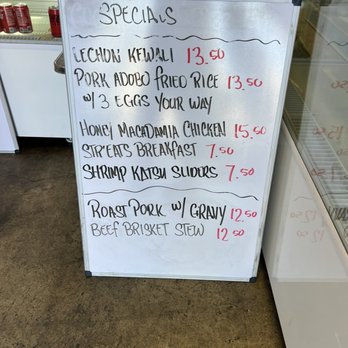 SPECIALS
LECHON KEWALI 13.50
PORK ADOBO FRIED RICE 13.50
W/ 3 EGGS YOUR WAY
HONEY MACADAMIA CHICKEN 15.50
STR'EATS BREAKFAST 7.50
SHRIMP KATSU SLIDERS 7.50
ROAST PORK W/ GRAVY 12.50
BEEF BRISKET STEW 12.50